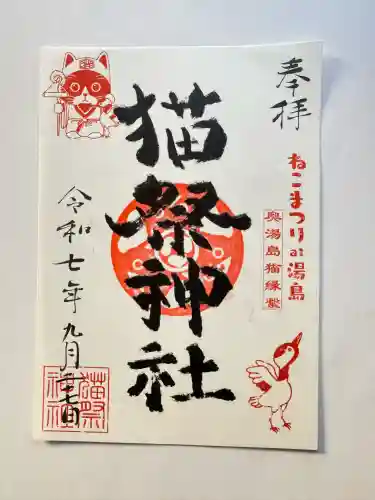 奉拝
ねこまつり at 湯島
奥湯島猫縁繋
猫祭神社
令和七年九月二十七日
猫祭
神社